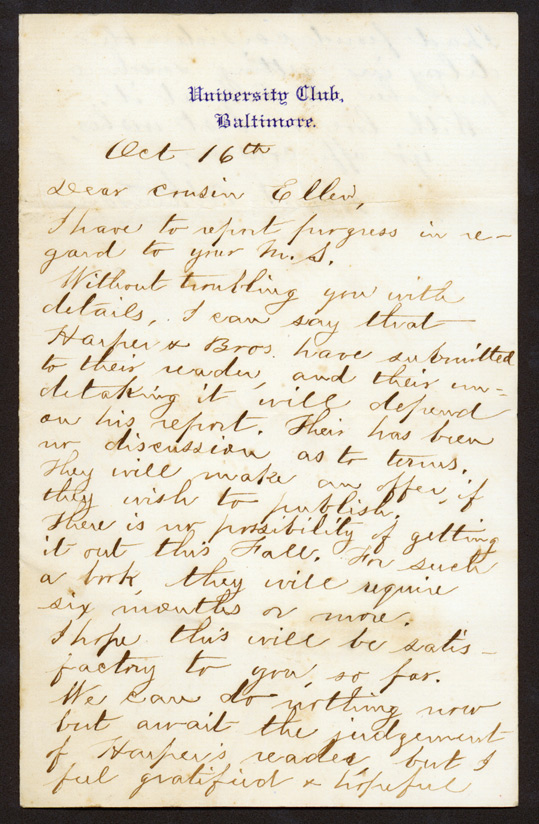 University Club,
Baltimore.
Oct 16th
Dear cousin Ellen,
I have to report progress in re-
gard to your M. S.
Without troubling you with
details, I can say that
Harper & Bros. have submitted
to their reader, and their un-
dertaking it will depend
on his report. Their has been
no discussion as to terms.
They will make an offer, if
they wish to publish.
There is no possibility of getting
it out this Fall. For such
a book, they will require
six months or more.
I hope this will be satis-
factory to you, so far.
We can do nothing now
but await the judgement
of Harper's reader, but I
feel gratified & hopeful